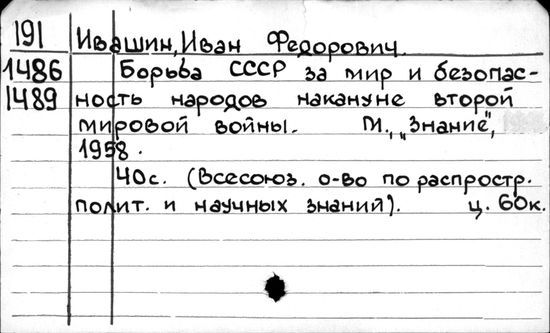 191 Ивашин, Иван Федорович.
1486 Борьба СССР за мир и безопас-
1489 ность народов накануне второй
мировой войны. М., „Знание",
1958.
40с. (Всесоюз. о-во по распростр.
полит. и научных знаний). ц. 60к.